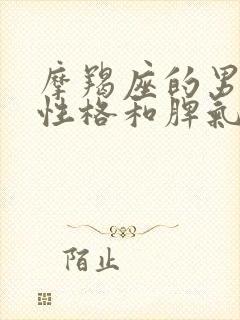 摩羯座的男
性格和脾氣
陌止